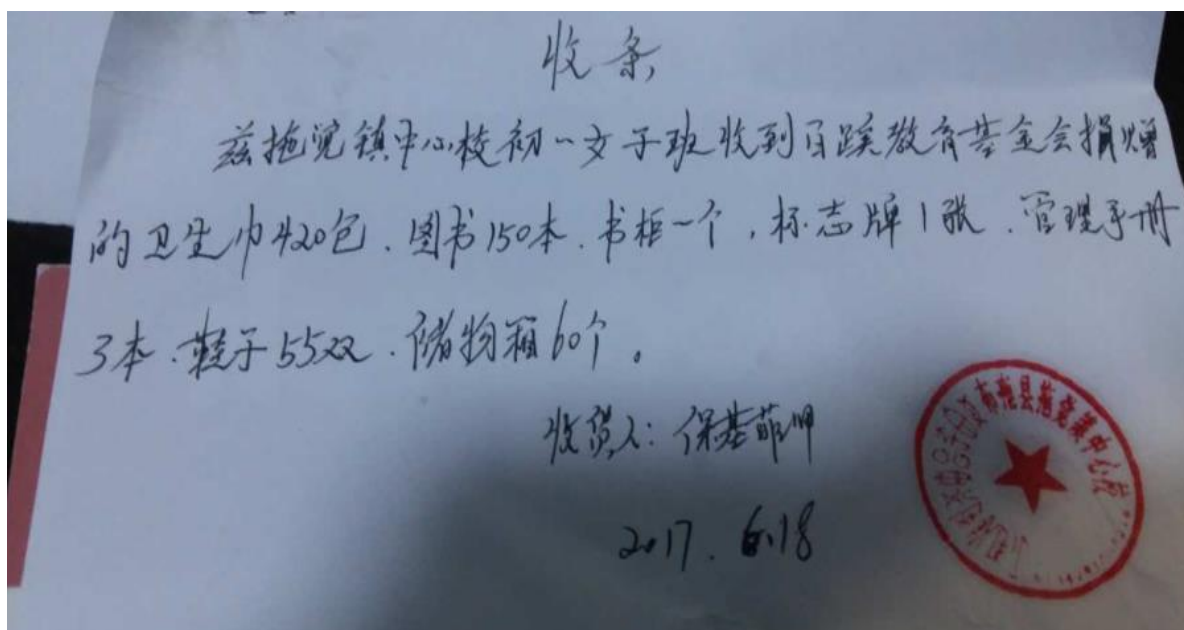 收条
兹拖觉镇中心校初一女子班收到百蹊教育基金会捐赠
的卫生巾420包、图书150本、书柜一个，标志牌1张、管理手册
3本、鞋子55双、储物箱60个。
收货人：保基
2017.6.18
布拖县拖觉镇中心校